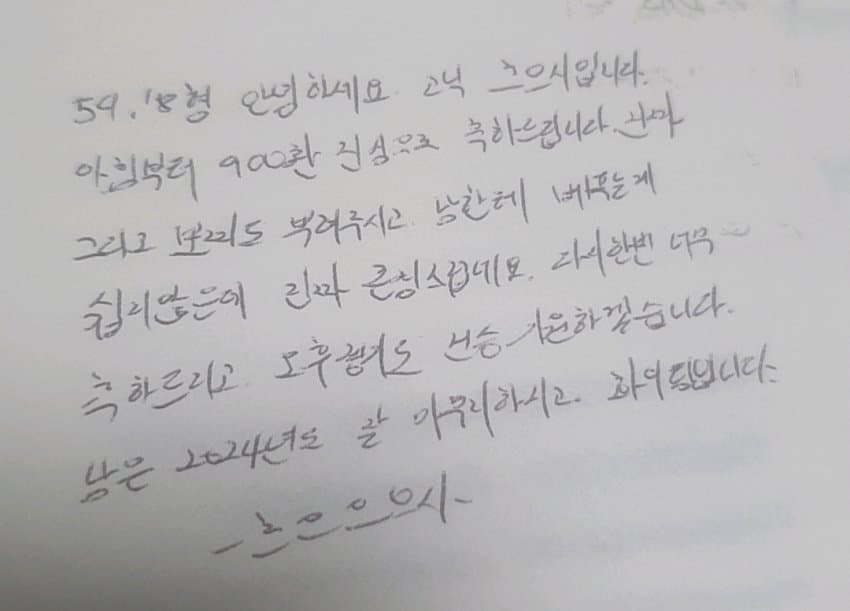 59.18형 안녕하세요 고닉 츠으시입니다.
아침부터 900환 진심으로 축하드립니다. 진짜
그리고 보찌도 뿌려주시고 남한테 베푸는게
쉽지않은데 진짜 존칭스럽네요. 다시한번 너무
축하드리고 오후경기도 건승 기원하겠습니다.
남은 2024년도 잘 마무리하시고. 화이팅입니다.
- 츠으으으시-